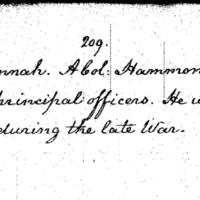 209.
nnah. A Col: Hammon
principal officers. He w
during the late War.